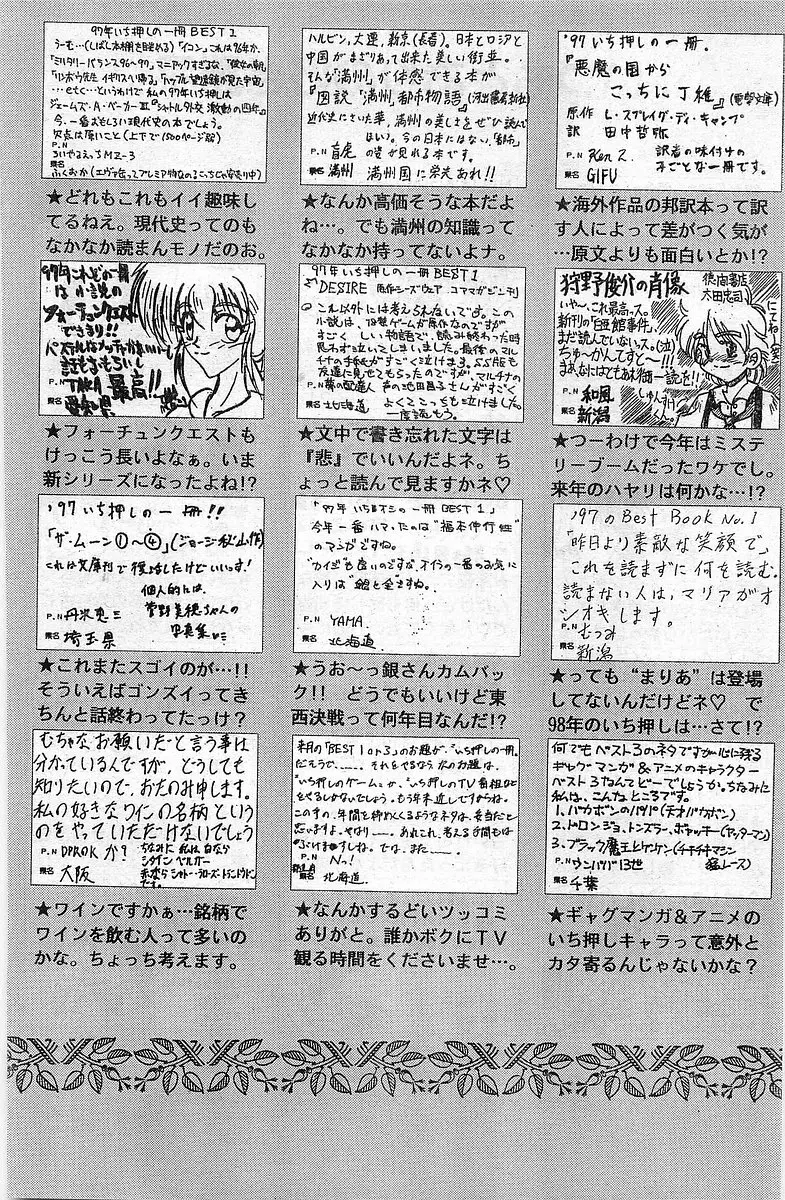 '97年いち押しの一冊 BEST1
今、一番おもしろい現代史の本でしょう。
P.N
県名
★どれもこれもイイ趣味し
てるねえ。現代史ってのも
なかなか読まんモノだのお。
ハルビン,大連,新京(長春)。日本とロシアと
中国がまざりあって出来た美しい街並。
そんな「満州」が体感できる本が
『図説「満州」都市物語』(河出書房新社)
近代史にさいた華、満州の美しさをぜひ読んで
ほしい。今の日本にはない、「都市」
の姿が見れる本です。
P.N
県名 満州 満州国に栄えあれ!!
★なんか高価そうな本だよ
ね…。でも満州の知識って
なかなか持ってないよナ。
'97いち押しの一冊.
『悪魔の国から
こっちに丁稚』(電撃文庫)
原作 L・スプレイグ・ディ・キャンプ
訳 田中哲弥
P.N Ken Z. 訳者の味付けの
みごとな一冊です。
県名 GIFU
★海外作品の邦訳本って訳
す人によって差がつく気が
…原文よりも面白いとか!?
97年これぞの一冊
は小説の
フォーチュンクエスト
できまり!!
P.N TAKA 最高!!
県名 愛知県
★フォーチュンクエストも
けっこう長いよなぁ。いま
新シリーズになったよね!?
97年いち押しの一冊 BEST1
DESIRE 原作シーズウェア コアマガジン刊
これ以外には考えられないです。この
小説は、18禁ゲームが原作なのですが
すごく しい物語で、読み終わった時
思わず泣いてしまいました。最後のマル
チナの手紙がすごく泣けます。SS版も
友達に見せてもらったのですが、マルチナの
P.N 夢の配達人 声の池田昌子さんがすごく
よくてこっちも泣けました。
県名 北海道 一度読もう。
★文中で書き忘れた文字は
『悲』でいいんだよネ。ち
ょっと読んで見ますかネ♡
狩野俊介の肖像 徳間書店
太田忠司
いや〜、これ最高っス。
新刊の「白亜館事件」、
まだ読んでいないス。(泣)
ちゅーかんてすと〜!!!
P.N 和風
県名 新潟
★つーわけで今年はミステ
リーブームだったワケでし。
来年のハヤリは何かな…!?
'97いち押しの一冊!!
「ザ・ムーン①〜④」(ジョージ秋山作)
これは文庫刊で復活したけどいいっす!
個人的には、
菅野美穂ちゃんの
写真集…
P.N 丹沢恵三
県名 埼玉県
★これまたスゴイのが…!!
そういえばゴンズイってき
ちんと話終わってたっけ?
「'97年いちオシの一冊 BEST 1」
今年一番ハマったのは"福本伸行"
のマンガですね。
"カイジ"も良いのですが、オイラの一番のお気に
入りは"銀と金"ですね。
P.N YAMA
県名 北海道.
★うお〜っ銀さんカムバッ
ク!! どうでもいいけど東
西決戦って何年目なんだ!?
'97のBest Book No.1
「昨日より素敵な笑顔で」
これを読まずに何を読む.
読まない人は,マリアがオ
シオキします.
P.N むつみ
県名 新潟
★っても"まりあ"は登場
してないんだけどネ♡ で
98年のいち押しは…さて!?
むちゃなお願いだと言う事は
分かっているんですが、どうしても
知りたいので、おたのみ申します。
私の好きなワインの名柄という
のをやっていただけないでしょう
か?
P.N DPROK ちなみに私は白なら
県名 大阪
です。
★ワインですかぁ…銘柄で
ワインを飲む人って多いの
かな。ちょっち考えます。
来月の「BEST 1 or 3」のお題が、"いち押しの一冊"
だそうで……。それなら次のお題は、
"いち押しのゲーム"とか、"いち押しのTV番組"など
をやるしかないでしょう。もう年末近しですからね。
この手の、年間を締めくくるようなネタは、妥当だと
思いますよ。やはり……。あれこれ、考える手間も
はぶけますしね。では、また……
P.N Nっ!
県名 北海道.
★なんかするどいツッコミ
ありがと。誰かボクにTV
観る時間をくださいませ…。
何でもベスト3のネタですが心に残る
ギャグマンガ&アニメのキャラクター
ベスト3なんてどーでしょうか。ちなみに
私は、こんなところです。
1.バカボンのパパ(天才バカボン)
2.ドロンジョ・トンズラー・ボヤッキー(ヤッターマン)
3.ブラック魔王とケンケン(チキチキマシン
猛レース)
P.N ウンババ13世
県名 千葉
★ギャグマンガ&アニメの
いち押しキャラって意外と
カタ寄るんじゃないかな?